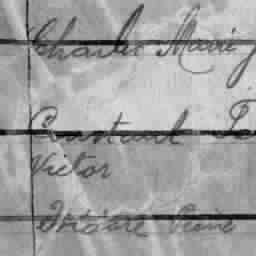 Charles Marie J
Constant Fe
Victor
Isidore Pierre